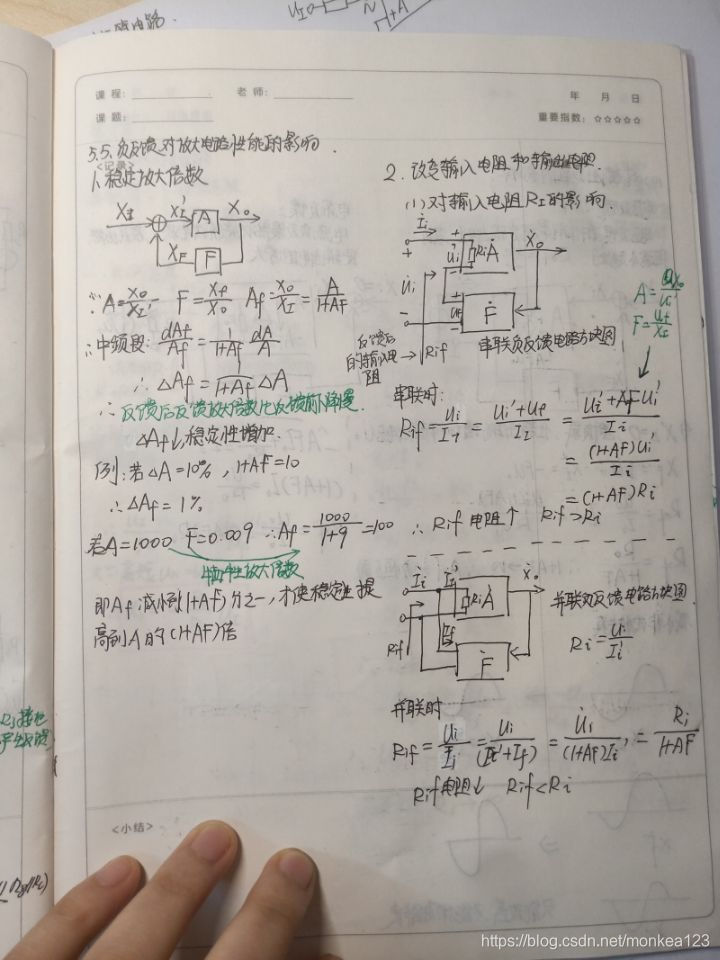 课程: 老师: 年 月 日
课题: 重要指数: ☆☆☆☆☆
5.5. 负反馈对放大电路性能的影响.
<记录>
1. 稳定放大倍数
XI XI' A Xo
XF F
∵A=Xo/XI' F=Xf/Xo Af=Xo/XI=A/(1+AF)
∴中频段: dAf/Af=1/(1+AF) dA/A
∴ΔAf=1/(1+AF) ΔA
∴反馈后反馈放大倍数比反馈前下降慢.
ΔAf↓,稳定性增加.
例:若ΔA=10%, 1+AF=10
∴ΔAf=1%
若A=1000 F=0.009 ∴Af=1000/(1+9)=100
牺牲放大倍数
即Af减小到(1+AF)分之一,才使稳定性提
高到A的(1+AF)倍
2. 改变输入电阻和输出电阻.
(1) 对输入电阻RI的影响.
Ii
+ + Ui' Ri A Xo
Ui
+ Uf - F
-
反馈后
的输入电
阻
Rif 串联负反馈电路方块图
A=Xo/Ui'
F=Uf/XI
串联时:
Rif=Ui/II=(Ui'+Uf)/II=(Ui'+AFUi')/Ii
=(1+AF)Ui'/Ii
=(1+AF)Ri
∴ Rif电阻↑ Rif>Ri
Ii Ii' Ri A Xo
If
Rif F
并联负反馈电路方块图
Ri=Ui/Ii'
并联时
Rif=Ui/Ii=Ui/(Ii'+If)=Ui/(1+AF)Ii'=Ri/(1+AF)
Rif电阻↓ Rif<Ri
<小结>
https://blog.csdn.net/monkea123